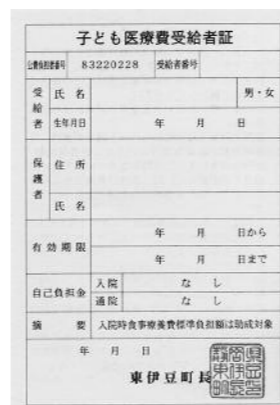 子ども医療費受給者証
公費負担者番号 83220228 受給者番号
受給者 氏名 男・女
生年月日 年 月 日
保護者 住所
氏名
有効期限 年 月 日から
年 月 日まで
自己負担金 入院 なし
通院 なし
摘要 入院時食事療養費標準負担額は助成対象
年 月 日
東伊豆町長